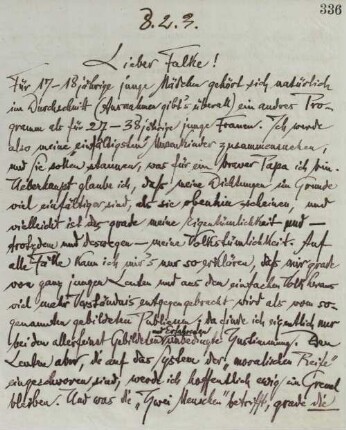 336
8.2.3.
Lieber Falke!
Für 17–18jährige junge Mädchen gehört sich natürlich
im Durchschnitt (Ausnahmen gibt's überall) ein andres Pro-
gramm als für 27–38jährige junge Frauen. Ich werde
also meine einfältigsten Musenkinder zusammensuchen,
und Sie sollen staunen, was für ein braver Papa ich bin.
Ueberhaupt glaube ich, daß meine Dichtungen im Grunde
viel einfältiger sind, als sie obenhin scheinen, und
vielleicht ist das grade meine Eigentümlichkeit und –
trotzdem und deswegen – meine Volkstümlichkeit. Auf
alle Fälle kann ich mir's nur so erklären, daß mir grade
von ganz jungen Leuten und aus dem einfachen Volk heraus
viel mehr Verständnis entgegengebracht wird als vom so-
genannten gebildeten Publikum; da finde ich eigentlich nur
bei den allerfeinst Gebildeten und Erfahrenden unbedingte Zustimmung. Den
Leuten aber, die auf das System der „moralischen Reife"
eingeschworen sind, werde ich hoffentlich ewig ein Greuel
bleiben. Und was die „Zwei Menschen" betrifft, grade die